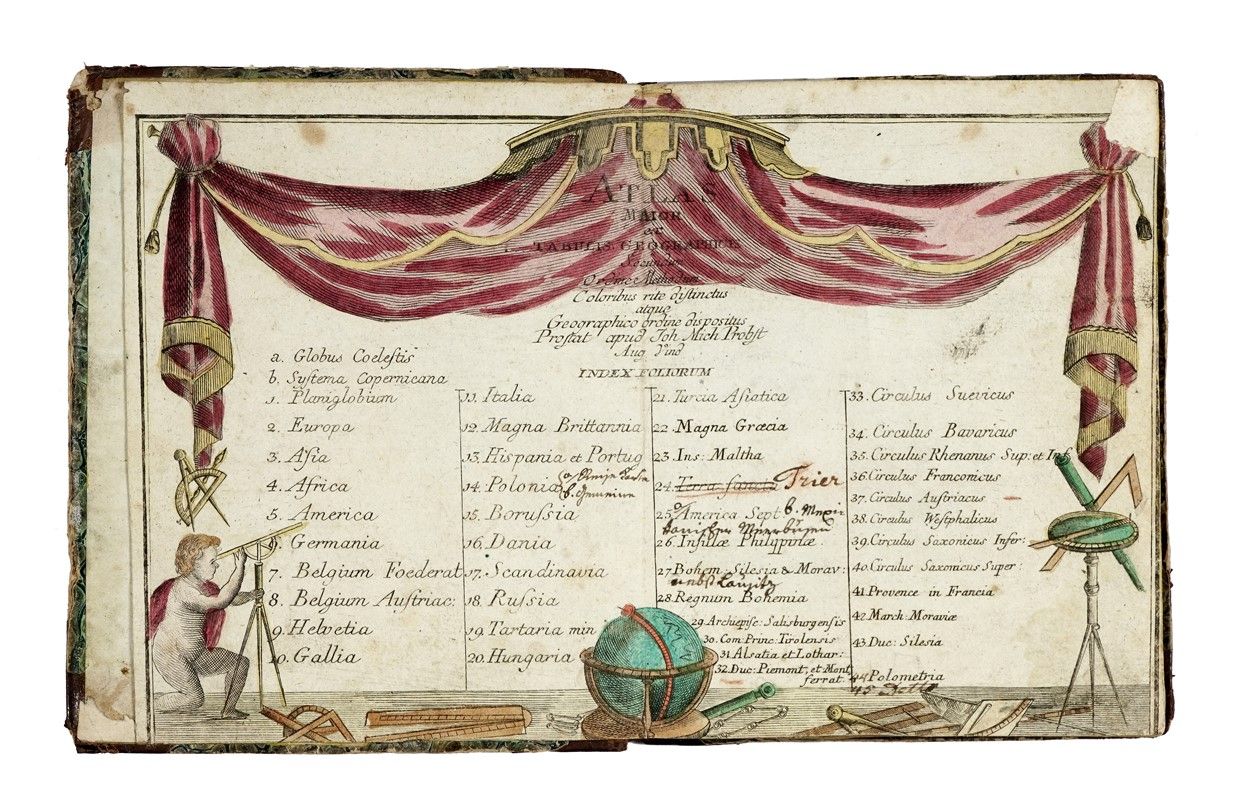 ATLAS
MAIOR
ex
TABULIS GEOGRAPHICIS
Secundum
Ordine Methodum
Coloribus rite distinctus
atque
Geographico ordine dispositus
Prostat apud Joh Mich Probst
Aug Vind
INDEX FOLIORUM
a. Globus Coelestis
b. Systema Copernicana
1. Planiglobium
2. Europa
3. Asia
4. Africa
5. America
6. Germania
7. Belgium Foederat
8. Belgium Austriac:
9. Helvetia
10. Gallia
11. Italia
12. Magna Brittannia
13. Hispania et Portug
14. Polonia
b. Gemeine
15. Borussia
16. Dania
17. Scandinavia
18. Russia
19. Tartaria min
20. Hungaria
21. Turcia Asiatica
22. Magna Græcia
23. Ins: Maltha
24. Terra sancta Trier
25. America Sept b. Mexi
canischer Meerbusen
26. Insulæ Philippinæ
27 Bohem: Silesia & Morav:
nebst Lausitz
28. Regnum Bohemia
29. Archiepisc: Salisburgensis
30. Com: Princ: Tirolensis
31 Alsatia et Lothar:
32 Duc: Piemont, et Mont
ferrat.
33. Circulus Suevicus
34. Circulus Bavaricus
35. Circulus Rhenanus Sup: et Inf:
36. Circulus Franconicus
37. Circulus Austriacus
38. Circulus Westphalicus
39. Circulus Saxonicus Infer:
40. Circulus Saxonicus Super:
41 Provence in Francia
42. March: Moraviæ
43. Duc: Silesia
44 Polometria
45 Detto